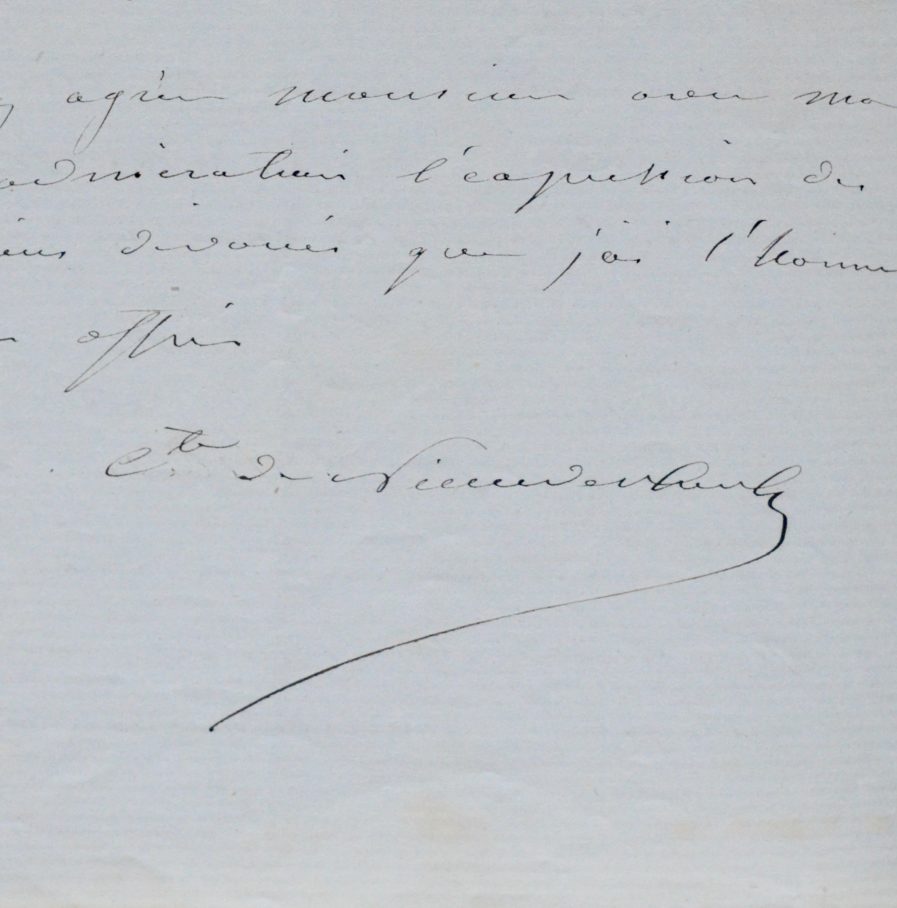 agréer monsieur avec ma
admiration l'expression des
dévoués que j'ai l'honneur
offrir
Cte de Nieuwerkerke